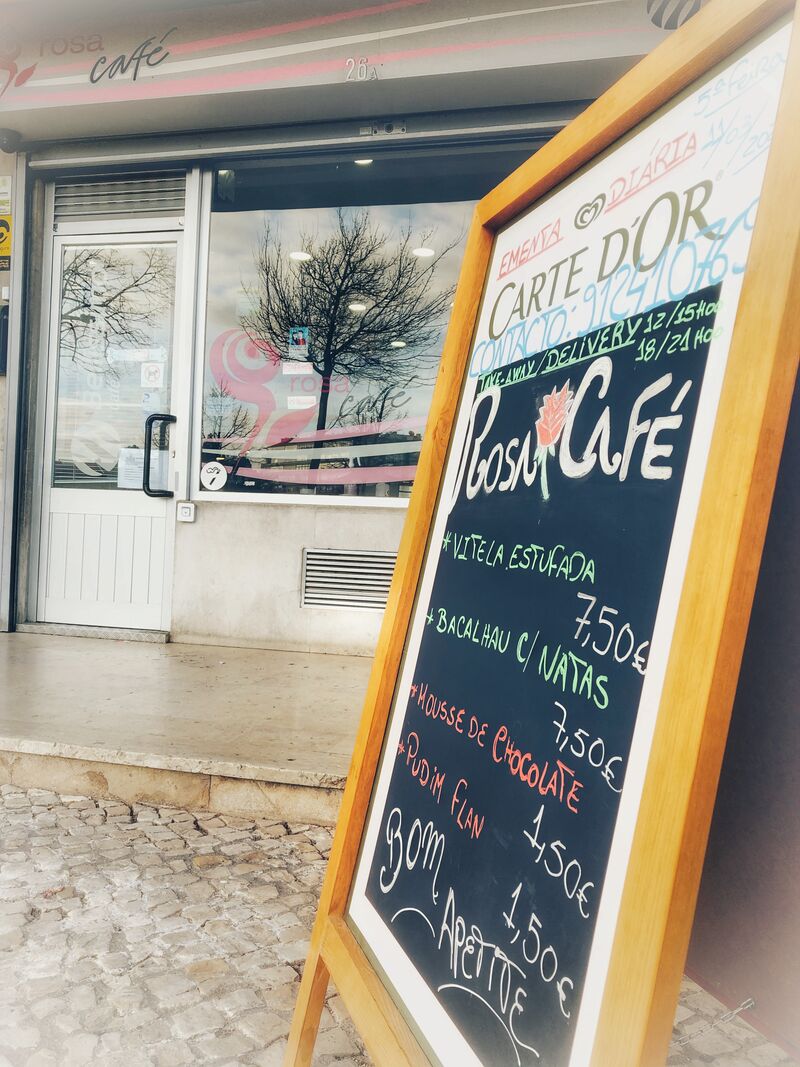 rosa
café
26A
rosa
café
5ª feira
EMENTA DIÁRIA
11/03/20
CARTE D'OR
CONTACTO: 912410769
TAKE-AWAY/DELIVERY 12/15H00
18/21H00
ROSA CAFÉ
*VITELA ESTUFADA
7,50€
*BACALHAU C/ NATAS
7,50€
*MOUSSE DE CHOCOLATE
1,50€
*PUDIM FLAN
1,50€
BOM
APETITE